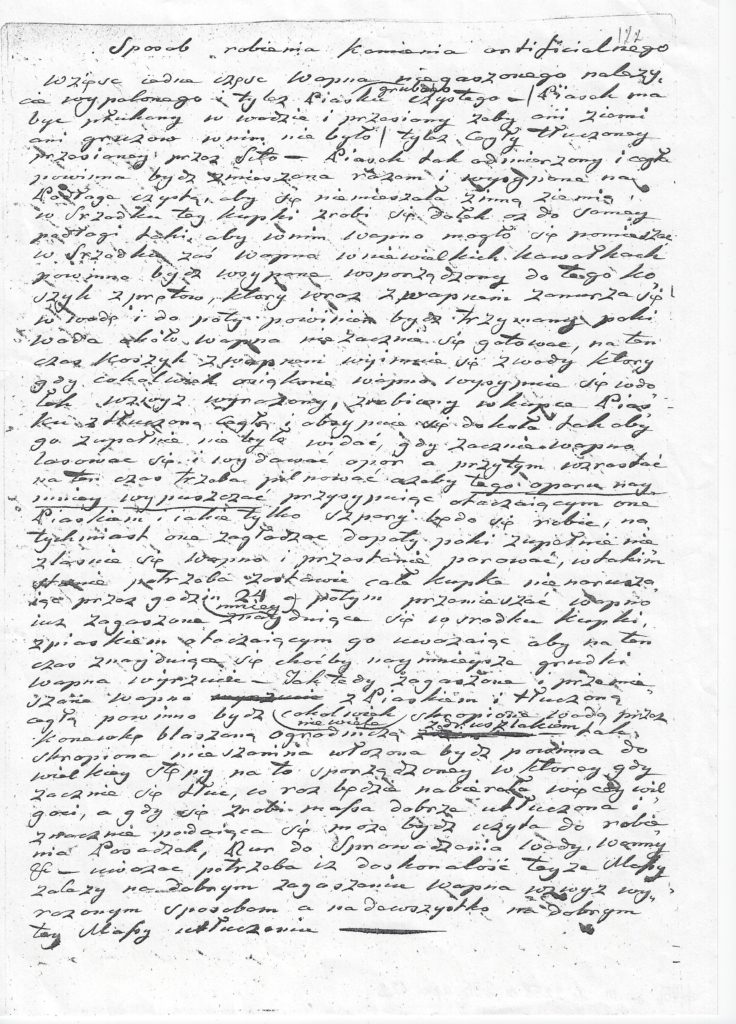 122
Sposob robienia Kamienia artificialnego
Wziąść iedne częsc Wapna niegaszonego należy,
cie wypalonego i tyleż Piasku grubego czystego — / Piasek ma
bydź płukany w wodzie i przesiany żeby ani ziemi
ani gruzow w nim nie było / tyleż Cegły tłuczoney
przesianey przez Sito — Piasek tak odmierzony i cegła
powinna bydź zmieszana razem i wysypana na
Podłogę czystą, aby się niemieszała z inną ziemią,
w Srzodku tey kupki zrobi się dołek az do samey
podłogi taki, aby w nim wapno mogło się pomieszcac
w Srzodku zaś Wapna w niewielkich kawałkach
powinno bydź wsypane wsporządzony do tego ko,
szyk z prętow, ktory wraz z wapnem zanurza się
w Wodę i do poty powinien bydź trzymany poki
woda około wapna nie zacznie się gotować, na ten
czas Koszyk z wapnem wyimuie się z wody ktory
gdy cokolwiek osiąknie wapno wysypuie się w do
łek wzwyż wyrażony, zrobiony w kupce Pias,
ku z tłuczoną cegłą, obsypuie się do koła tak aby
go zupełnie nie było widać, gdy zacznie wapno
lasować się i wydawać opar a przytym wzrastać
na ten czas trzeba pilnować ażeby tego oparu nay,
mniey wypuszczać przysypuiąc otaczaiącym one
Piaskiem i iakie tylko szpary będą się robić, na
tychmiast one zagładzać dopoty poki zupełnie nie
zlasuie się wapno i przestanie parować, w takim
stanie potrzeba zostawić całe kupkę nie narusza,
iąc przez godzin 24 mniey a potym przemieszać wapno
iuż zagaszone znayduiące się w osrodku kupki,
z piaskiem otaczaiącym go uważaiąc aby na ten
czas znayduiące się choćby naymnieysze grudki
wapna wyrzucić — Jak tedy zagaszone i przemie,
szane wapno z Piaskiem i tłuczoną
cegłą powinno bydź cokolwiek niewiele skropione wodą przez
konewkę blaszoną ogrodniczą tak,
skropiona mieszanina włożona bydź powinna do
wielkiey stępy na to sporządzoney w ktorey gdy
zacznie się tłuc, co raz będzie nabierała więcey wil
goci, a gdy się zrobi massa dobrze utłuczona i
znacznie podaiąca się może bydź użyta do robie,
nia Posadzek, Rur do Sprowadzenia Wody, Wanny
& — uważać potrzeba iż doskonałość teyże Massy
zależy na dobrym zagaszeniu wapna wzwyż wy,
rażonym sposobem a nadewszystko na dobrym
tey Massy utłuczeniu